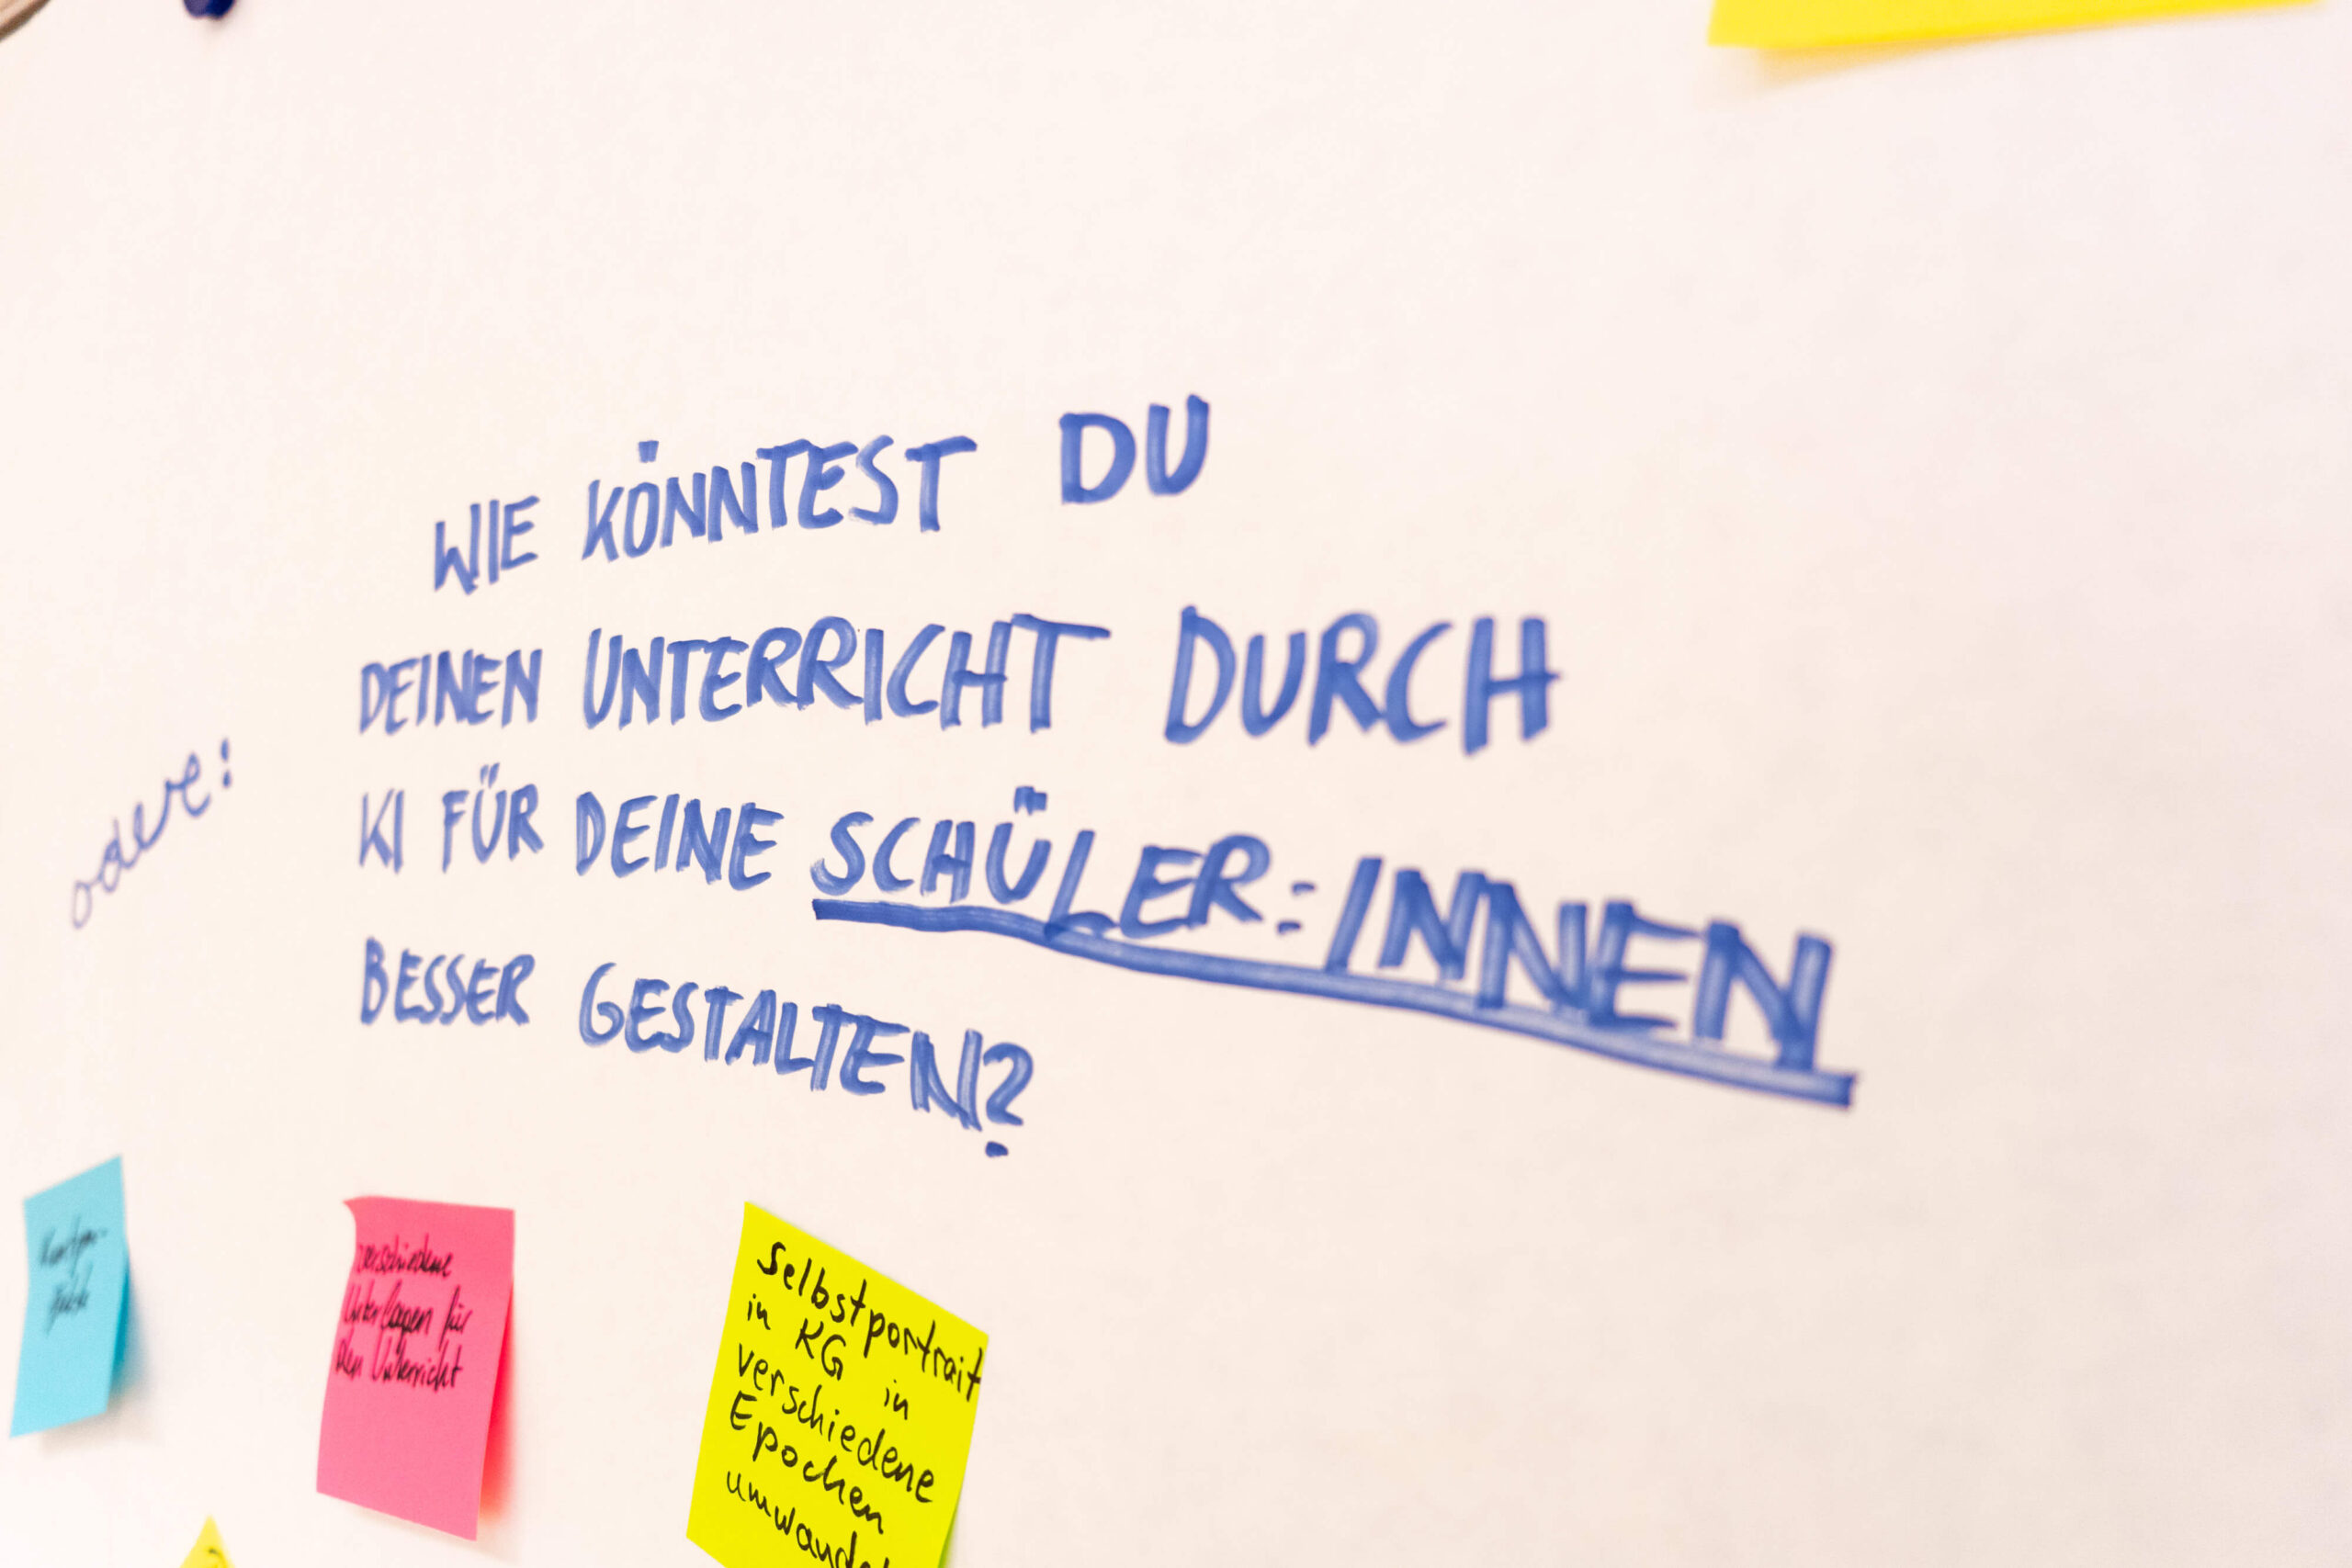 WIE KÖNNTEST DU
DEINEN UNTERRICHT DURCH
oder:
KI FÜR DEINE SCHÜLER:INNEN
BESSER GESTALTEN?
verschiedene
Unterlagen für
den Unterricht
Selbstportrait
in KG in
verschiedene
Epochen